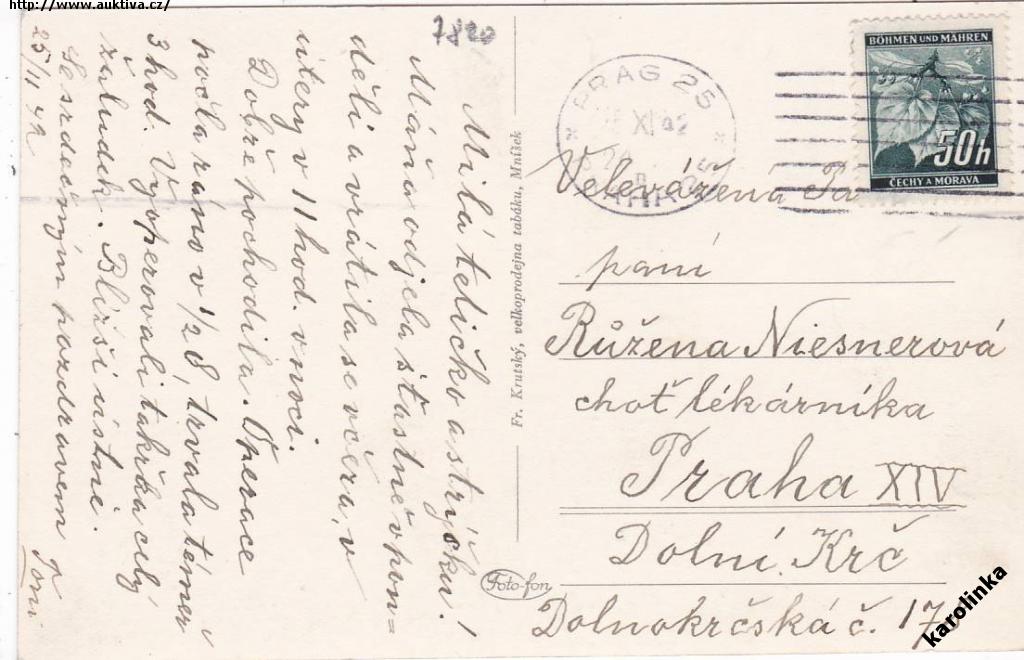 http://www.auktiva.cz/
7820
Milá teličko a strýčku!
Máňa odjela šťastně v pon=
dělí a vrátila se včera, v
úterý v 11 hod. v noci.
Dobře pochodila. Operace
počla ráno v 1/2 8, trvala téměř
3 hod. Vyoperovali takřka celý
žaludek. Bližší ústně.
Se srdečným pozdravem Toni
25/11 42
Fr. Krutský, velkoprodejna tabáku, Mníšek
Foto-fon
PRAG 25
XI 42
PRAHA 25
BÖHMEN UND MÄHREN
50h
ČECHY A MORAVA
Velevážená Pa
paní
Růžena Niesnerová
choť lékárníka
Praha XIV
Dolní Krč
Dolnokrčská č. 17
karolinka